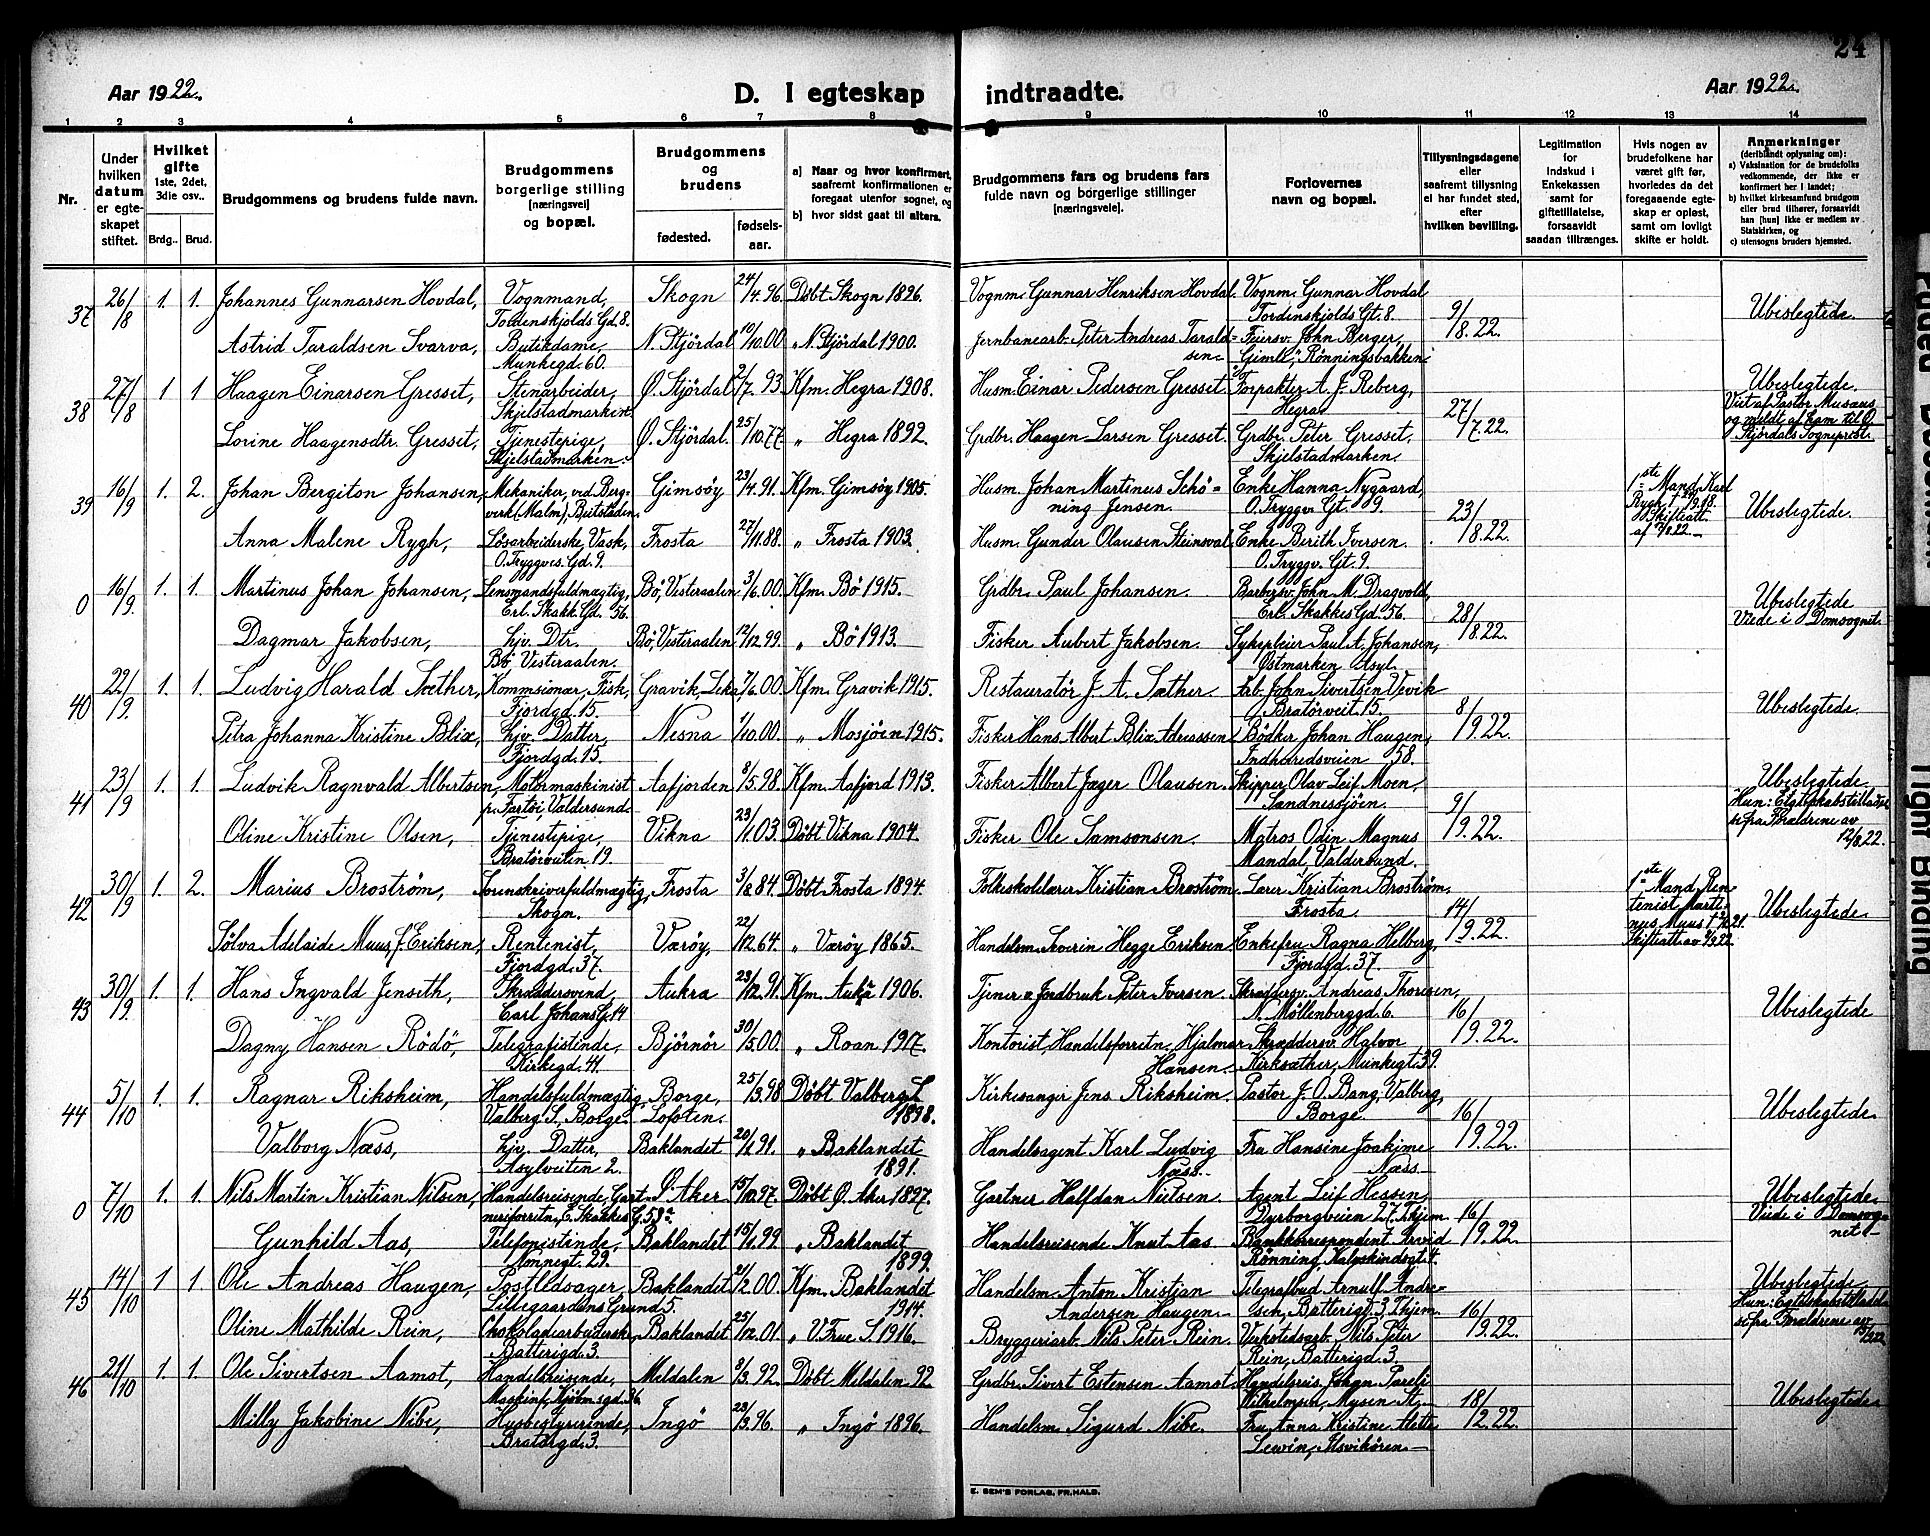 24
Aar 1922.
D. I egteskap
indtraadte.
Aar 1922.
1 2 3 4 5 6 7 8 9 10 11 12 13 14
Nr.
Under hvilken datum er egteskapet stiftet.
Hvilket gifte 1ste, 2det, 3die osv..
Brdg.. Brud.
Brudgommens og brudens fulde navn.
Brudgommens borgerlige stilling (næringsvei) og bopæl.
Brudgommens og brudens
fødested.
fødselsaar.
a) Naar og hvor konfirmert, saafremt konfirmationen er foregaat utenfor sognet, og
b) hvor sidst gaat til alters.
Brudgommens fars og brudens fars fulde navn og borgerlige stillinger (næringsveie).
Forlovernes navn og bopæl.
Tillysningsdagene eller saafremt tillysning ei har fundet sted, efter hvilken bevilling.
Legitimation for indskud i Enkekassen samt for giftetillatelse, forsaavidt saadan tiltrænges.
Hvis nogen av brudefolkene har været gift før, hvorledes da det foregaaende egteskap er opløst, samt om lovligt skifte er holdt.
Anmerkninger
(deriblandt oplysning om):
a) Vaksination for de brudefolks vedkommende, der ikke er konfirmert her i landet;
b) hvilket kirkesamfund brudgom eller brud tilhører, forsaavidt han [hun] ikke er medlem av Statskirken, og
c) utensogns bruders hjemsted.
37 26/8 1. 1. Johannes Gunnarsen Hovdal, Vognmand, Tordenskjolds Gd. 8. Skogn 24/4.96. Døbt Skogn 1896. Vognm. Gunnar Henriksen Hovdal Vognm. Gunnar Hovdal Tordenskjolds Gt. 8. 9/8.22. Ubeslegtede.
Astrid Taraldsen Svarva, Butikdame, Munkegd. 60. N. Stjördal 10/10.00 " N. Stjördal 1900. Jernbanearb. Peter Andreas Taraldsen Feiersv. John Berger, "Gimle", Rönningsbakken
38 27/8 1 1 Haagen Einarsen Gresset, Stenarbeider, Skjelstadmarken Ø. Stjördal 2/7.93 Kfm. Hegra 1908. Husm. Einar Pedersen Gresset. Forpakter A. J. Reberg, Hegra 27/7.22. Ubeslegtede.
Viet af Pastor Musæus og meldt af ham til Ø. Stjördals Sogneprest.
Lorine Haagensdtr. Gresset, Tjenestepige, Skjelstadmarken. Ø. Stjördal 25/10.77 " Hegra 1892. Grdbr. Haagen Larsen Gresset. Grdbr. Peter Gresset, Skjelstadmarken.
39 16/9 1. 2. Johan Bergiton Johansen, Mekaniker, ved Bergverk (Malm), Beitstaden. Gimsøy 23/4.91. Kfm. Gimsøy 1905. Husm. Johan Martinus Schöning Jensen. Enke Hanna Nygaard, O. Tryggv. Gt. 9. 23/8.22. 1ste Mand Karl Rygh Skifteatt. Ubeslegtede.
Anna Malene Rygh, Løsarbeiderske, Vask, O. Tryggves. Gd. 9. Frosta 27/11.88. " Frosta 1903. Husm. Gunder Olausen Steinsval Enke Berith Iversen. O. Tryggv. Gt. 9.
0 16/9. 1. 1. Martinus Johan Johansen, Lensmandsfuldmægtig, Erl. Skakk. Gd. 56. Bö, Vesteraalen 3/6.00. Kfm. Bö 1915. Grdbr. Paul Johansen. Barbersv. John M. Dragvold, Erl. Skakkes Gd. 56. 28/8.22. Ubeslegtede
Viede i Domsognet.
Dagmar Jakobsen, hjv. Dtr. Bö, Vesteraalen. Bö, Vesteraalen 12/12.99. " Bö 1913. Fisker Aubert Jakobsen. Sykepleier Paul A. Johansen, Østmarken Asyl.
40 22/9. 1. 1. Ludvig Harald Sæther, Kommsionær, Fisk, Fjordgd. 15. Gravik, Leka 7/6.00. Kfm. Gravik 1915. Restauratör J. A. Sæther. Arb. John Sivertsen Vevik Bratörveit. 15. 8/9.22. Ubeslegtede.
Petra Johanna Kristine Blix, hjv. Datter, Fjordgd. 15. Nesna 1/10.00. " Mosjöen 1915. Fisker Hans Albert Blix Adriassen Bödker Johan Haugen, Indherredsveien 58.
41 23/9 1. 1. Ludvik Ragnvald Albertsen, Motormaskinist p. Fartöi, Valdersund. Aafjorden 8/5.98. Kfm. Aafjord 1913. Fisker Albert Jager Olausen. Skipper Olav Leif Moen, Sandnessjöen. 9/9.22. Ubeslegtede
Hun: Egteskabstilladelse fra Forældrene av 12/8.22.
Oline Kristine Olsen, Tjenestepige, Bratörveiten 19 Vikna 23/1.03. Döbt Vikna 1904. Fisker Ole Samsonsen. Matros Odin Magnus Mandal, Valdersund.
42 30/9 1. 2. Marius Broström, Sorenskriverfuldmægtig, Skogn. Frosta 3/8.84. Döbt Frosta 1894. Folkeskolelærer Kristian Broström. Lærer Kristian Broström. Frosta. 14/9.22. 1ste Mand, Rentenist Martinus Muus Skifteatt. av Ubeslegtede
Sölva Adelaide Muus, f. Eriksen, Rentenist, Fjordgd. 37. Værøy, 22/12.64. " Værøy 1865. Handelsm. Severin Hegge Eriksen Enkefru Ragna Helberg, Fjordgd. 37.
43 30/9. 1. 1. Hans Ingvald Jenseth, Skræddersvend, Carl Johans G. 14 Aukra 23/12.91. Kfm. Aukra 1906. Tjener v. Jordbruk Peter Iversen. Skræddersv. Andreas Thoresen, N. Møllenberggd. 6. 16/9.22. Ubeslegtede
Dagny Hansen Rödö, Telegrafistinde, Kirkegd. 41. Björnör 30/5.00. " Roan 1917. Kontorist, Handelsforretn., Hjalmar Hansen. Skræddersv. Halvor Kirksæther, Munkegt. 39.
44 5/10 1. 1. Ragnar Riksheim, Handelsfuldmægtig, Valberg S., Borge. Borge, Lofoten. 25/3.98 Döbt Valberg S. 1898. Kirkesanger Jens Riksheim. Pastor J. O. Bang, Valberg, Borge. 16/9.22. Ubeslegtede
Valborg Næss, hjv. Datter, Asylveiten 2. Baklandet 20/1.91. " Baklandet 1891. Handelsagent Karl Ludvig Næss. Fru Hansine Joakime Næss
0 7/10 1. 1. Nils Martin Kristian Nilsen, Handelsreisende, Gartneriforretn., E. Skakkes G. 53a. Ø. Aker 15/10.97. Döbt Ø. Aker 1897. Gartner Halfdan Nielsen. Agent Leif Hessen, Dyrborgveien 27, Thjem 16/9.22. Ubeslegtede
Viede i Domsognet.
Gunhild Aas, Telefonistinde, Tomnegt. 29. Baklandet 15/1.99. " Baklandet 1899. Handelsreisende Knut Aas Bankkorrespondent Rönning, Kalvskindsgt. 4.
45 14/10 1 1. Ole Andreas Haugen, Postledsager, Lillegaardens Grund 5. Baklandet 21/2.00. Kfm. Baklandet 1914. Handelsm. Anton Kristian Andersen Haugen. Telegrafbud Arnulf Andresen, Batterigd. 3, Thjem. 16/9.22. Ubeslegtede
Hun: Egteskabstilladelse fra Forældrene av
Oline Mathilde Rein, Chokoladearbeiderske, Batterigd. 3. Baklandet 25/12.01. " V. Frue S. 1916. Bryggeriarb. Nils Peter Rein. Verkstedsarb. Nils Peter Rein, Batterigd. 3.
46 21/10 1. 1. Ole Sivertsen Aamot, Handelsreisende, Maskinf., Kjöbmsgd. 36. Meldalen 3/3.92. Döbt Meldalen 92 Grdbr. Sivert Estensen Aamot. Handelsreis. Johan Pareli Wilhelmsen, Mysen St. 18/12.22. Ubeslegtede
Milly Jakobine Nibe, Husbestyrerinde, Bratörgd. 3. Ingö 23/3.96. " Ingö 1896. Handelsm. Sigurd Nibe. Fru Anna Kristine Alette Lewin, Ilsvikören.
E. SEM'S FORLAG, FR.HALD.
Tight Binding